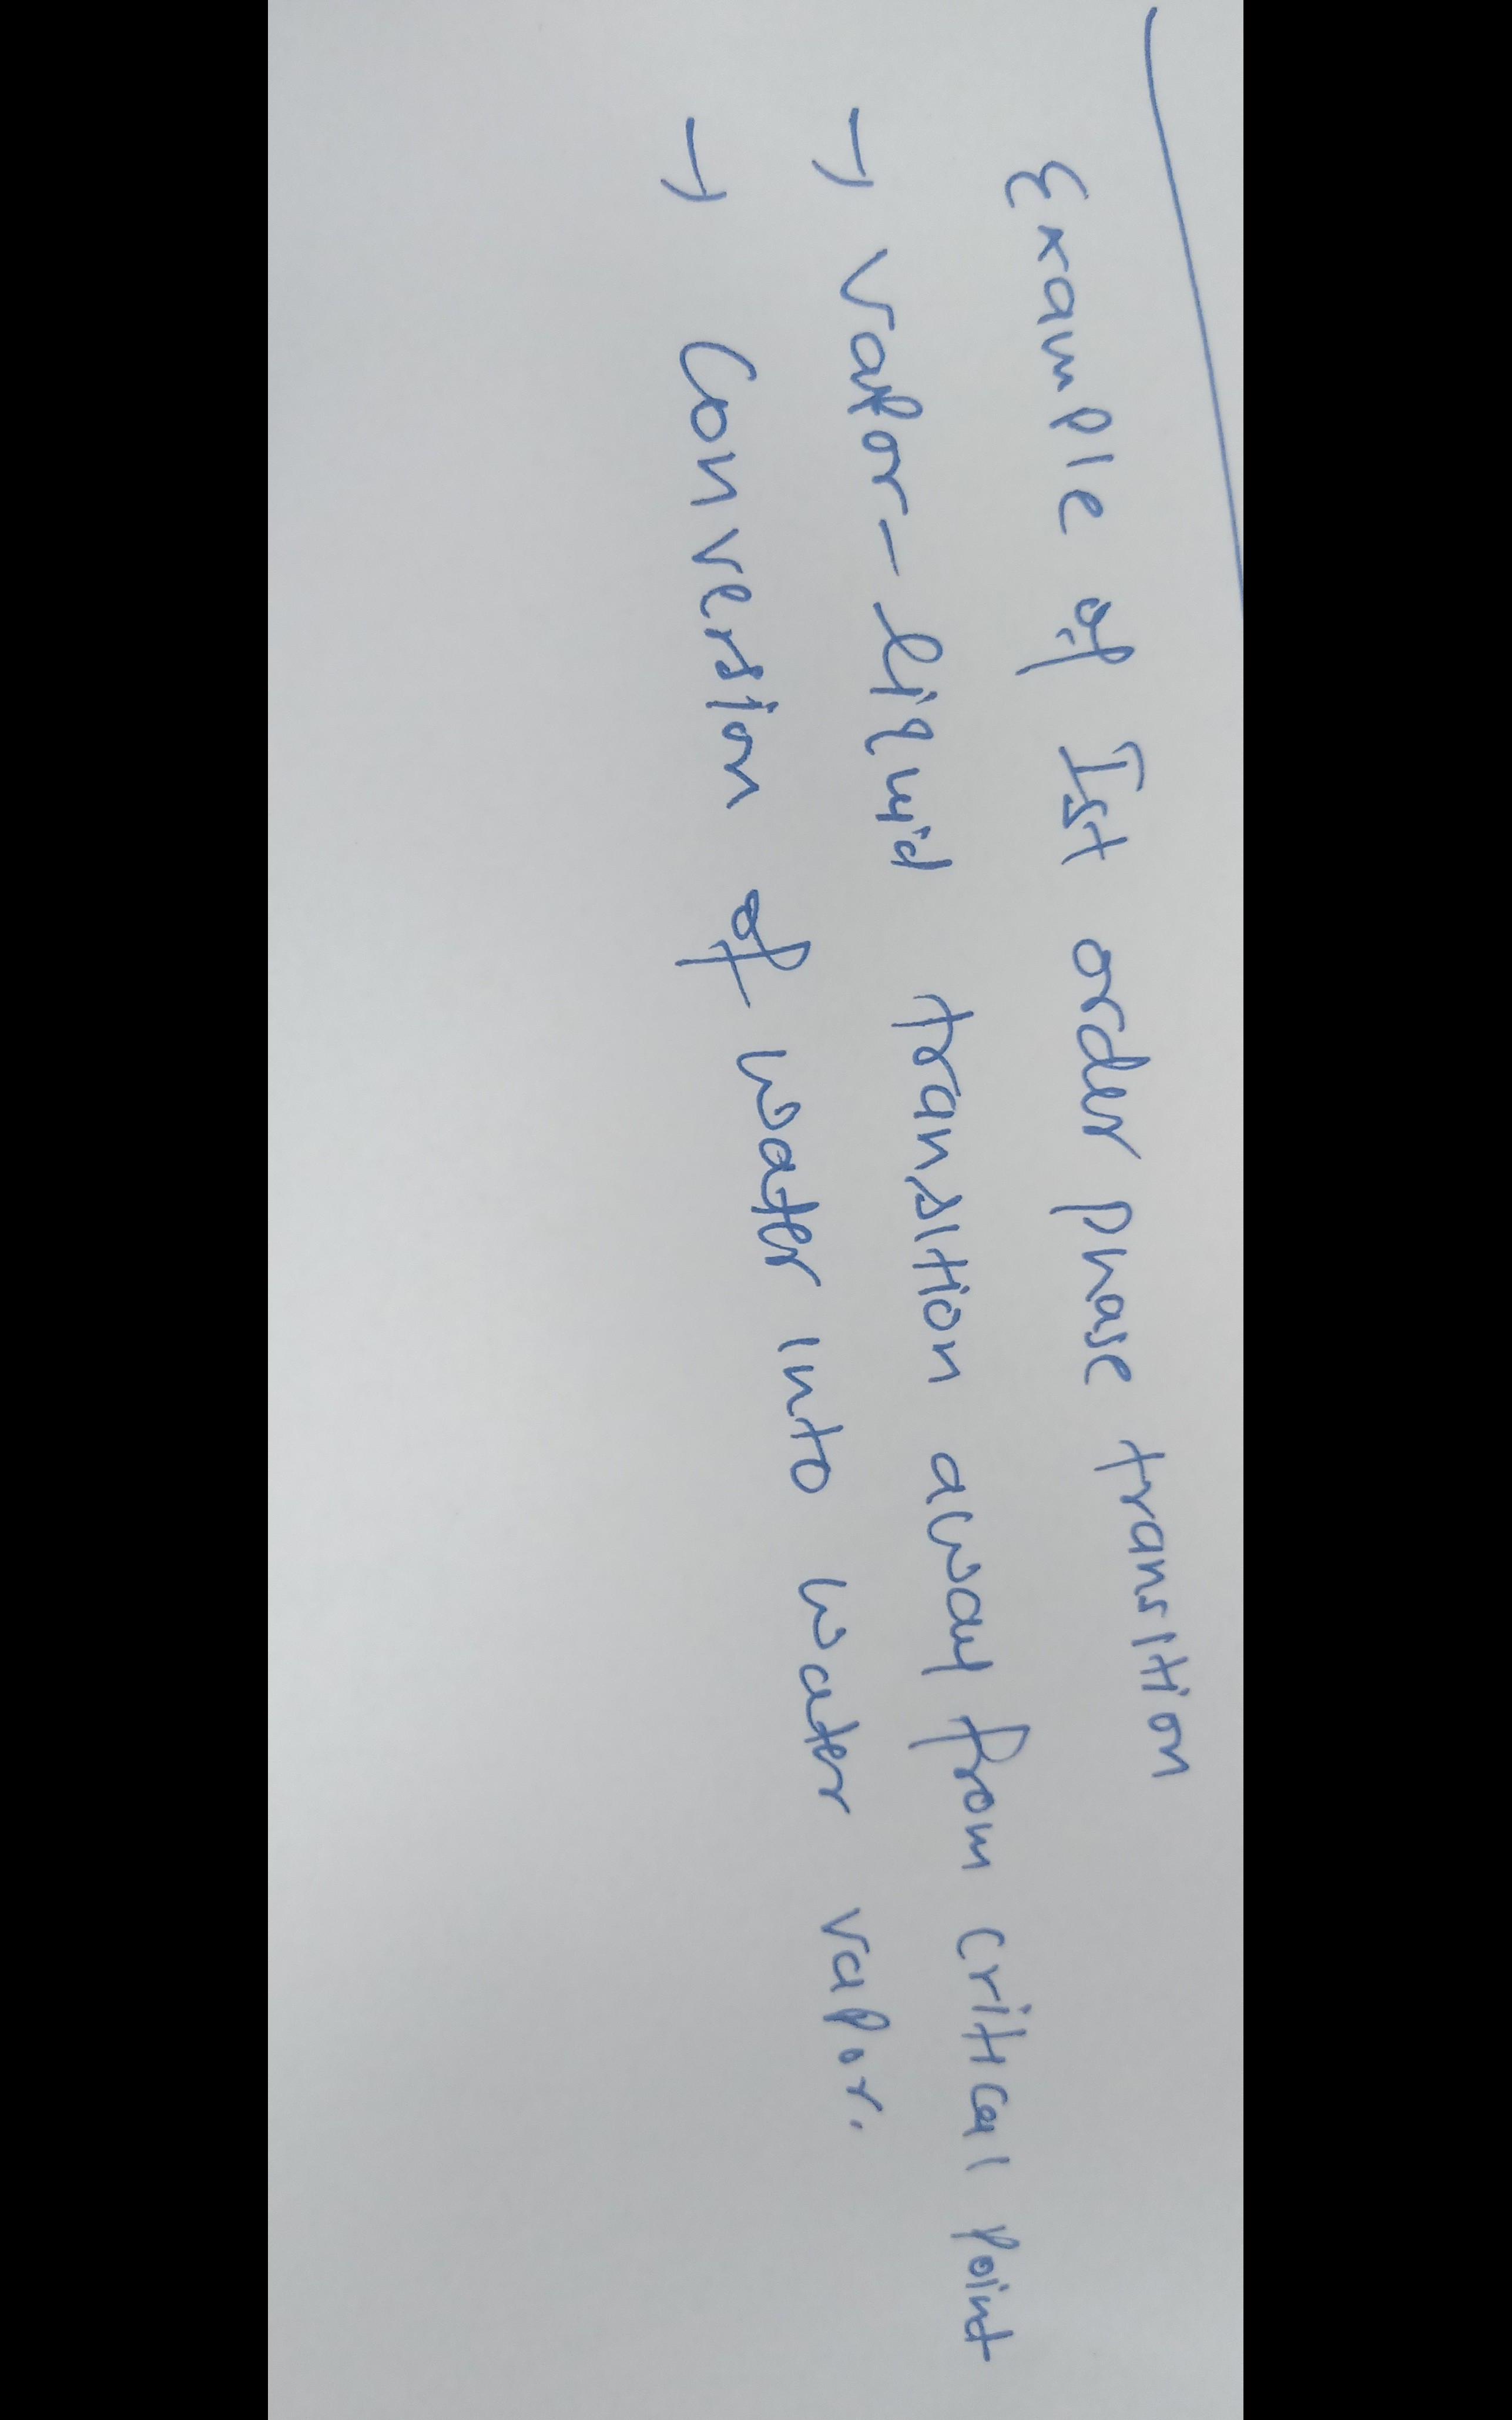 Example of Ist order phase transition
→ Vapor-liquid transition away from critical point
→ Conversion of water into water vapor.